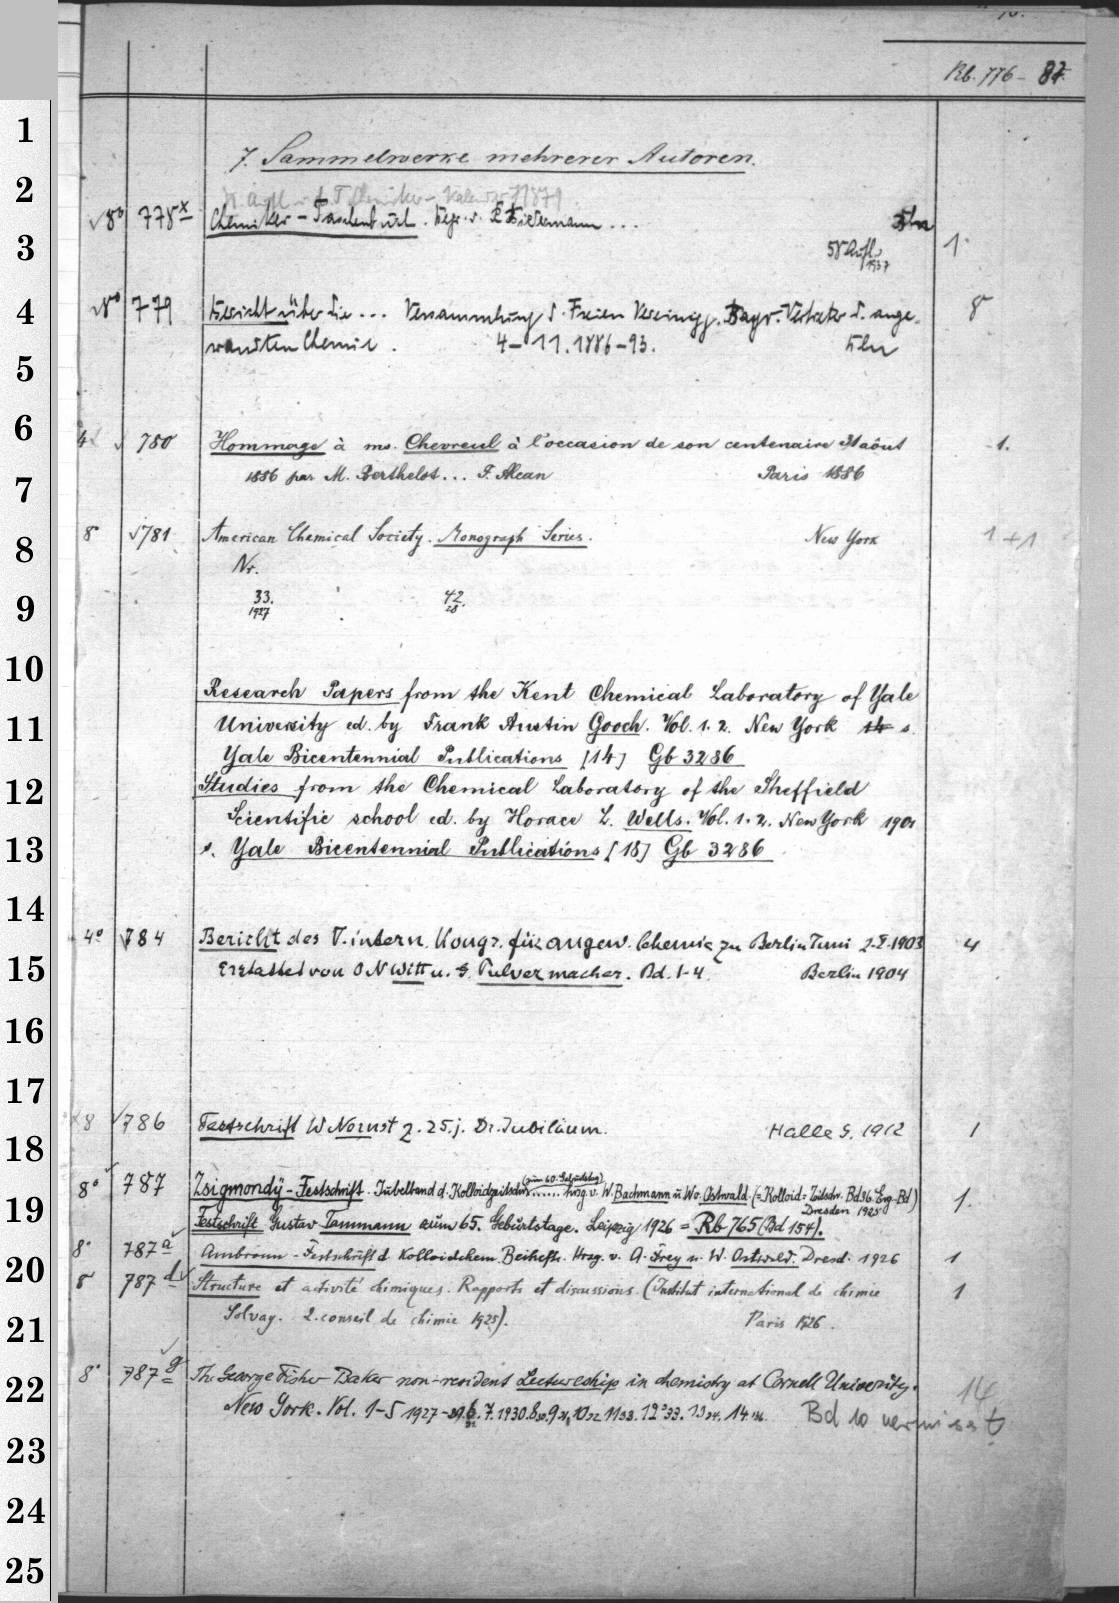 Rb. 776-
7. Sammelwerke mehrerer Autoren.
8° 778x Chemiker-Taschenbuch. Begr. v. R Biedermann ... Bln
58 Aufl. 1937 1.
8° 779 Bericht über die ... Versammlung d. Freien Vereinigg. Bayr. Vertreter d. ange-
wandten Chemie. 4-11.1886-93. Bln 8
4 780 Hommage à ms. Chevreul à l'occasion de son centenaire 31 aôut 1.
1886 par M. Berthelot... F. Alcan Paris 1886
8 781 American Chemical Society. Monograph Series. New York 1 +1
Nr.
33. 42.
1927 28
Research Papers from the Kent Chemical Laboratory of Yale
University ed. by Frank Austin Gooch. Vol. 1. 2. New York s.
Yale Bicentennial Publications [14] Gb 3286
Studies from the Chemical Laboratory of the Sheffield
Scientific school ed. by Horace L. Wells. Vol. 1. 2. New York 1901
s. Yale Bicentennial Publications [18] Gb 3286
4° 784 Bericht des V. intern. Kongr. für angew. Chemie zu Berlin Juni 2-8. 1903 4
Erstattet von O N Witt u. G. Pulvermacher. Bd. 1-4. Berlin 1904
8 786 Festschrift W Nernst z. 25.j. Dr. Jubiläum. Halle S. 1912 1
(zum 60. Geburtstag)
8° 787 Zsigmondy-Festschrift. Jubelband d. Kolloidzeitschr ...... hrsg. v. W. Bachmann u Wo. Ostwald (= Kolloid-Zeitschr. Bd 36. Erg-Bd) 1.
Dresden 1925
Festschrift Gustav Tammann zum 65. Geburtstage. Leipzig 1926 = Rb 765 (Bd 154).
8° 787 a Ambronn-Festschrift d. Kolloidchem. Beihefte. Hrsg. v. A. Frey u. W. Ostwald. Dresd. 1926 1
8 787 d Structure et activité chimiques. Rapports et discussions. (Institut international de chimie 1
Solvay. 2. conseil de chimie 1925). Paris 1926.
8° 787 g The George Fisher Baker non-resident Lectureship in chemistry at Cornell University. 14
New York. Vol. 1-5 1927-29. 6. 7. 1930. 8 30. 9 31. 10 32. 11 33. 12 33. 13 34. 14 36. Bd 10 vermisst
1
2
3
4
5
6
7
8
9
10
11
12
13
14
15
16
17
18
19
20
21
22
23
24
25